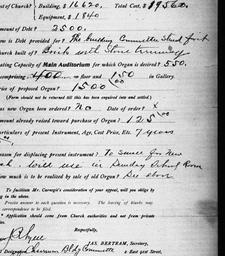 of Church? Building, $16620. Total Cost, $19560
Equipment, $1840
mount of Debt? 2500.
Debt provided for? The Building Committee Stand for it
hurch built of? Brick with Stone trimming
ating Capacity of Main Auditorium for which Organ is desired? 550.
omprising 400 on floor and 150 in Gallery.
rice of proposed Organ? 1500
(Form should not be returned till this has been enquired into and settled.)
as any Organ been ordered? No Date of order? x
mount already raised toward purchase of Organ? 125
articulars of present Instrument, Age, Cost Price, Etc. 7 years
eason for displacing present instrument? To small for New
will use in Sunday School Room
ow much is to be realized by sale of old Organ? See above
To facilitate Mr. Carnegie's consideration of your appeal, will you oblige by filling
in the above.
Precise answer to each question is necessary. The leaving of blanks may
correspondence to be filed.
Application should come from Church authorities and not from private
JAS. BERTRAM, Secretary,
Designation Chairman Bldg Committee 2 East 91st Street,